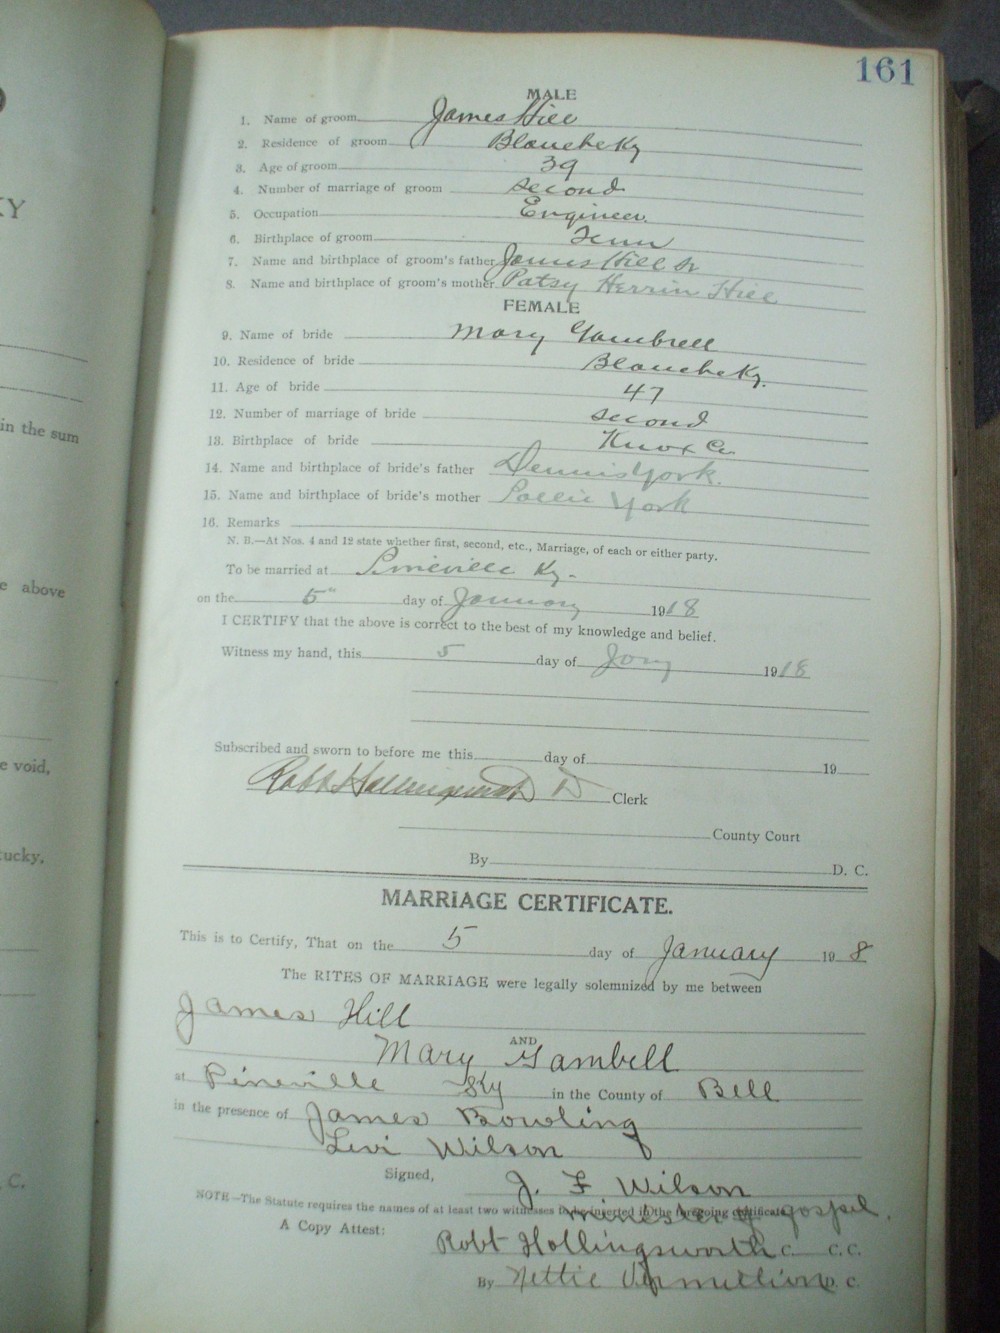 161
MALE
1. Name of groom James Hill
2. Residence of groom Blanche Ky
3. Age of groom 39
4. Number of marriage of groom second
5. Occupation Engineer.
6. Birthplace of groom Tenn
7. Name and birthplace of groom's father James Hill Sr
8. Name and birthplace of groom's mother Patsy Herrin Hill
FEMALE
9. Name of bride Mary Gambrell
10. Residence of bride Blanche Ky.
11. Age of bride 47
12. Number of marriage of bride second
13. Birthplace of bride Knox Co.
14. Name and birthplace of bride's father Dennis York.
15. Name and birthplace of bride's mother Sallie York
16. Remarks
N. B.—At Nos. 4 and 12 state whether first, second, etc., Marriage, of each or either party.
To be married at Pineville Ky.
on the 5" day of January 1918
I CERTIFY that the above is correct to the best of my knowledge and belief.
Witness my hand, this 5 day of Jany 1918
Subscribed and sworn to before me this day of 19
Robt Hollingsworth Clerk
County Court
By D. C.
MARRIAGE CERTIFICATE.
This is to Certify, That on the 5 day of January 19 8
The RITES OF MARRIAGE were legally solemnized by me between
James Hill
AND
Mary Gambell
at Pineville Ky in the County of Bell
in the presence of James Bowling
Levi Wilson
Signed, J. F. Wilson
NOTE—The Statute requires the names of at least two witnesses to be inserted in the foregoing certificate.
Minester of Gospel.
A Copy Attest:
Robt Hollingsworth C. C. C.
By Nettie Vermillion D. C.
KY
in the sum
e above
e void,
tucky,
C.